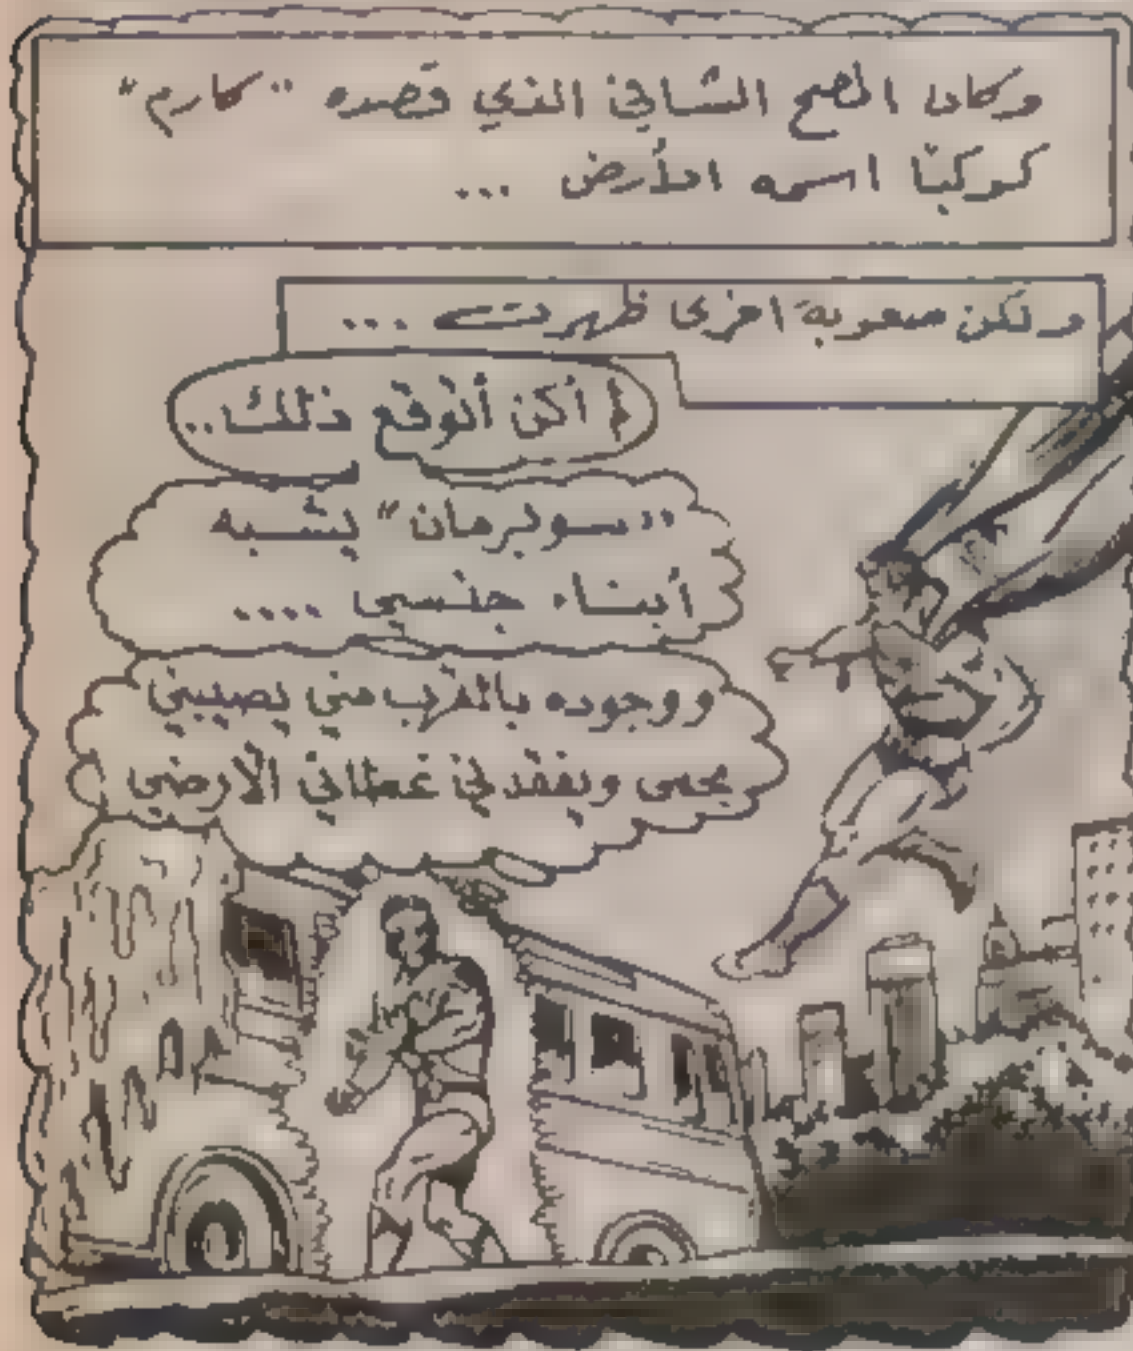 وكان المصح الثاني الذي قصده "كارم"
كوكبًا اسمه الأرض ...
ولكن صعوبة اخرى ظهرت ...
لم أكن أتوقع ذلك..
"سوبرمان" يشبه
أبناء جنسي ....
ووجوده بالقرب مني يصيبني
بحمى ويفقدني غطائي الأرضي